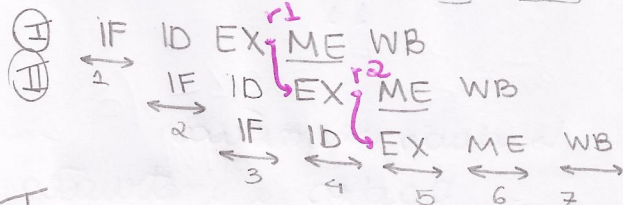 r1
I IF ID EX ME WB
1 r2
II IF ID EX ME WB
2
IF ID EX ME WB
3 4 5 6 7